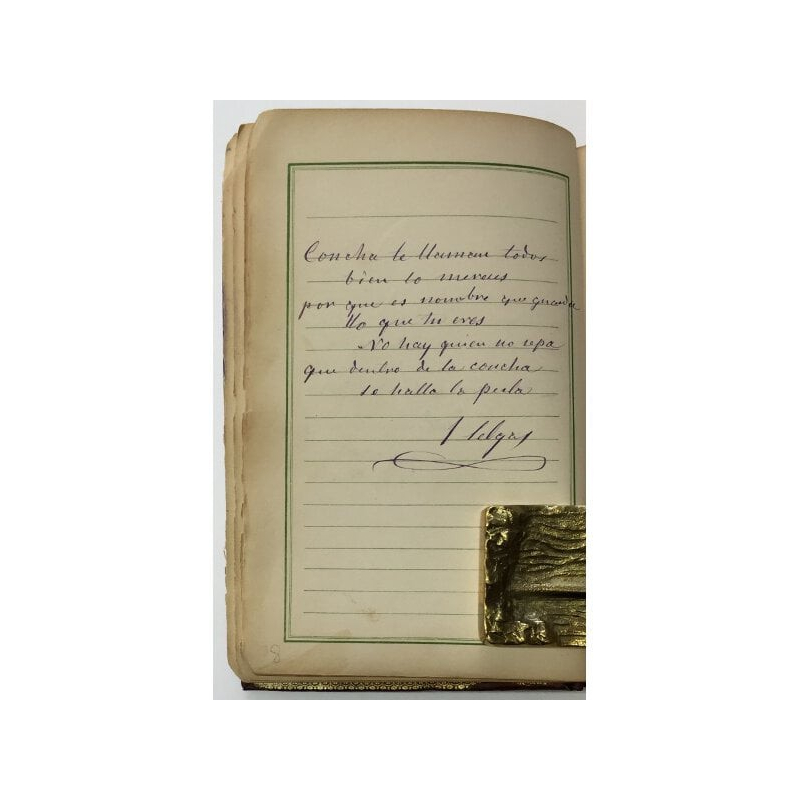 Concha te llaman todos
bien lo mereces
por que es nombre que guarda
lo que tu eres
No hay quien no sepa
que dentro de la concha
se halla la perla
J Selgas
8